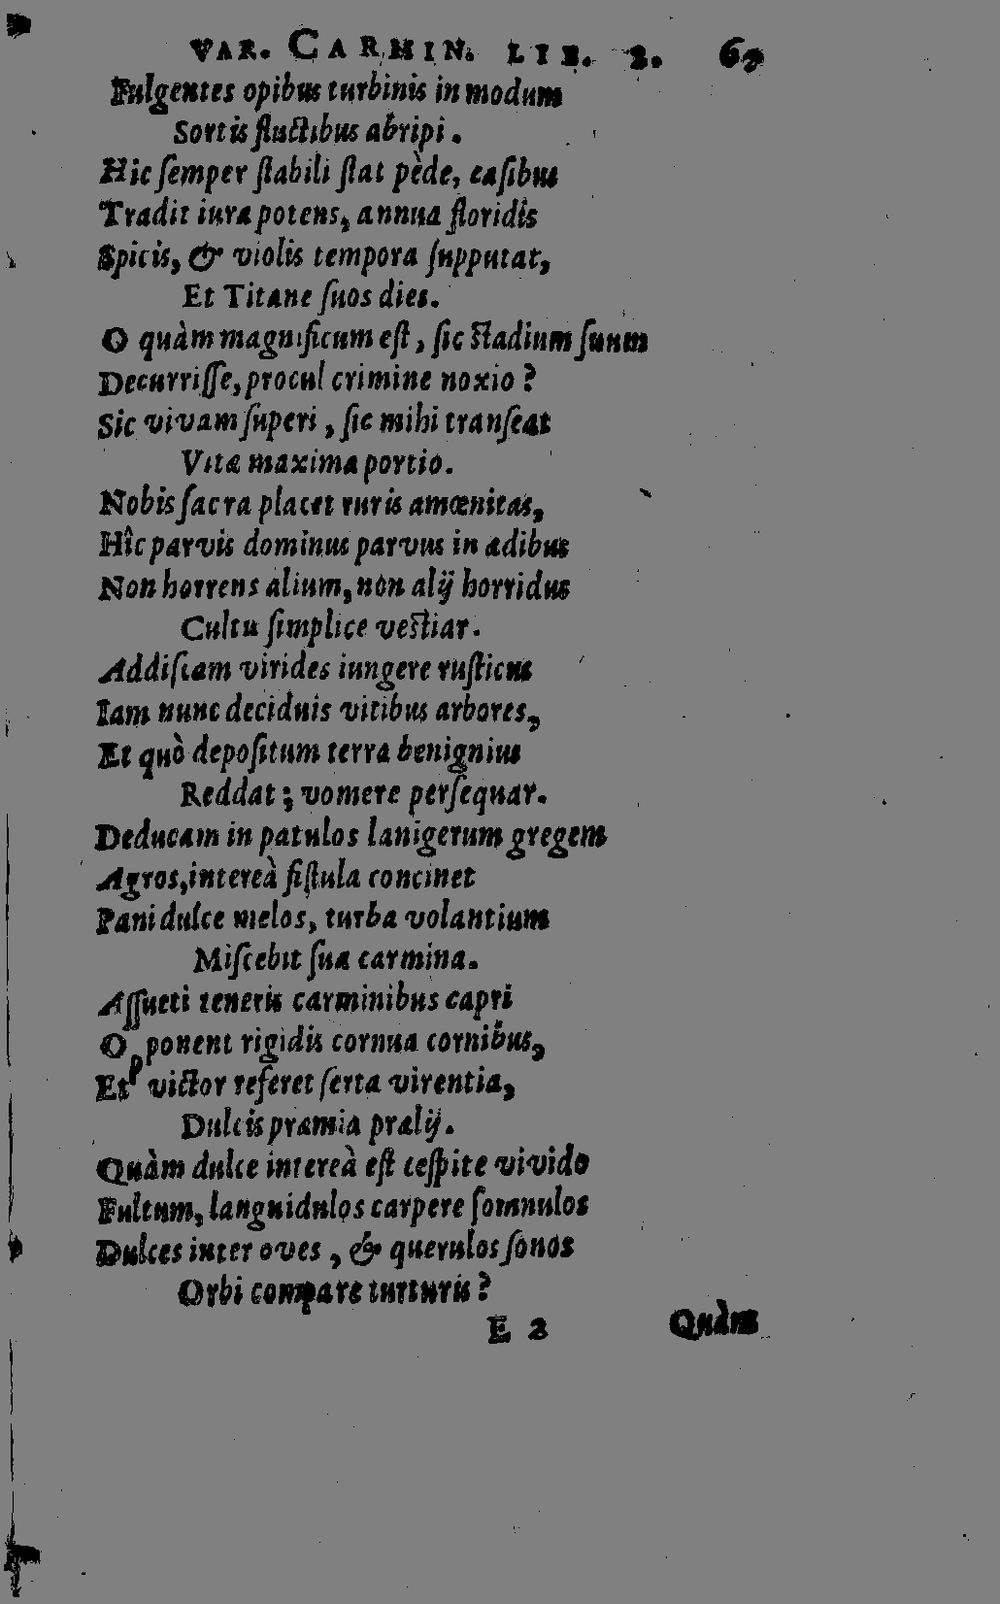 VAR. CARMIN. LIB. 2. 67
Fulgentes opibus turbinis in modum
Sortis fluctibus abripi.
Hic ſemper ſtabili ſtat pède, caſibus
Tradit iura potens, annua floridis
Spicis, & violis tempora ſupputat,
Et Titane ſuos dies.
O quàm magnificum eſt, ſic ſtadium ſuum
Decurriſſe, procul crimine noxio?
Sic vivam ſuperi, ſic mihi tranſeat
Vitæ maxima portio.
Nobis ſacra placet ruris amœnitas,
Hîc parvis dominus parvus in ædibus
Non horrens alium, non alij horridus
Cultu ſimplice veſtiar.
Addiſcam virides iungere ruſticus
Iam nunc deciduis vitibus arbores,
Et quò depoſitum terra benignius
Reddat; vomere perſequar.
Deducam in patulos lanigerum gregem
Agros, intereà fiſtula concinet
Pani dulce melos, turba volantium
Miſcebit ſua carmina.
Aſſueti teneris carminibus capri
Opponent rigidis cornua cornibus,
Et victor referet ſerta virentia,
Dulcis præmia prælij.
Quàm dulce intereà eſt ceſpite vivido
Fultum, languidulos carpere ſomnulos
Dulces inter oves, & querulos ſonos
Orbi compare turturis?
E 2 Quàm